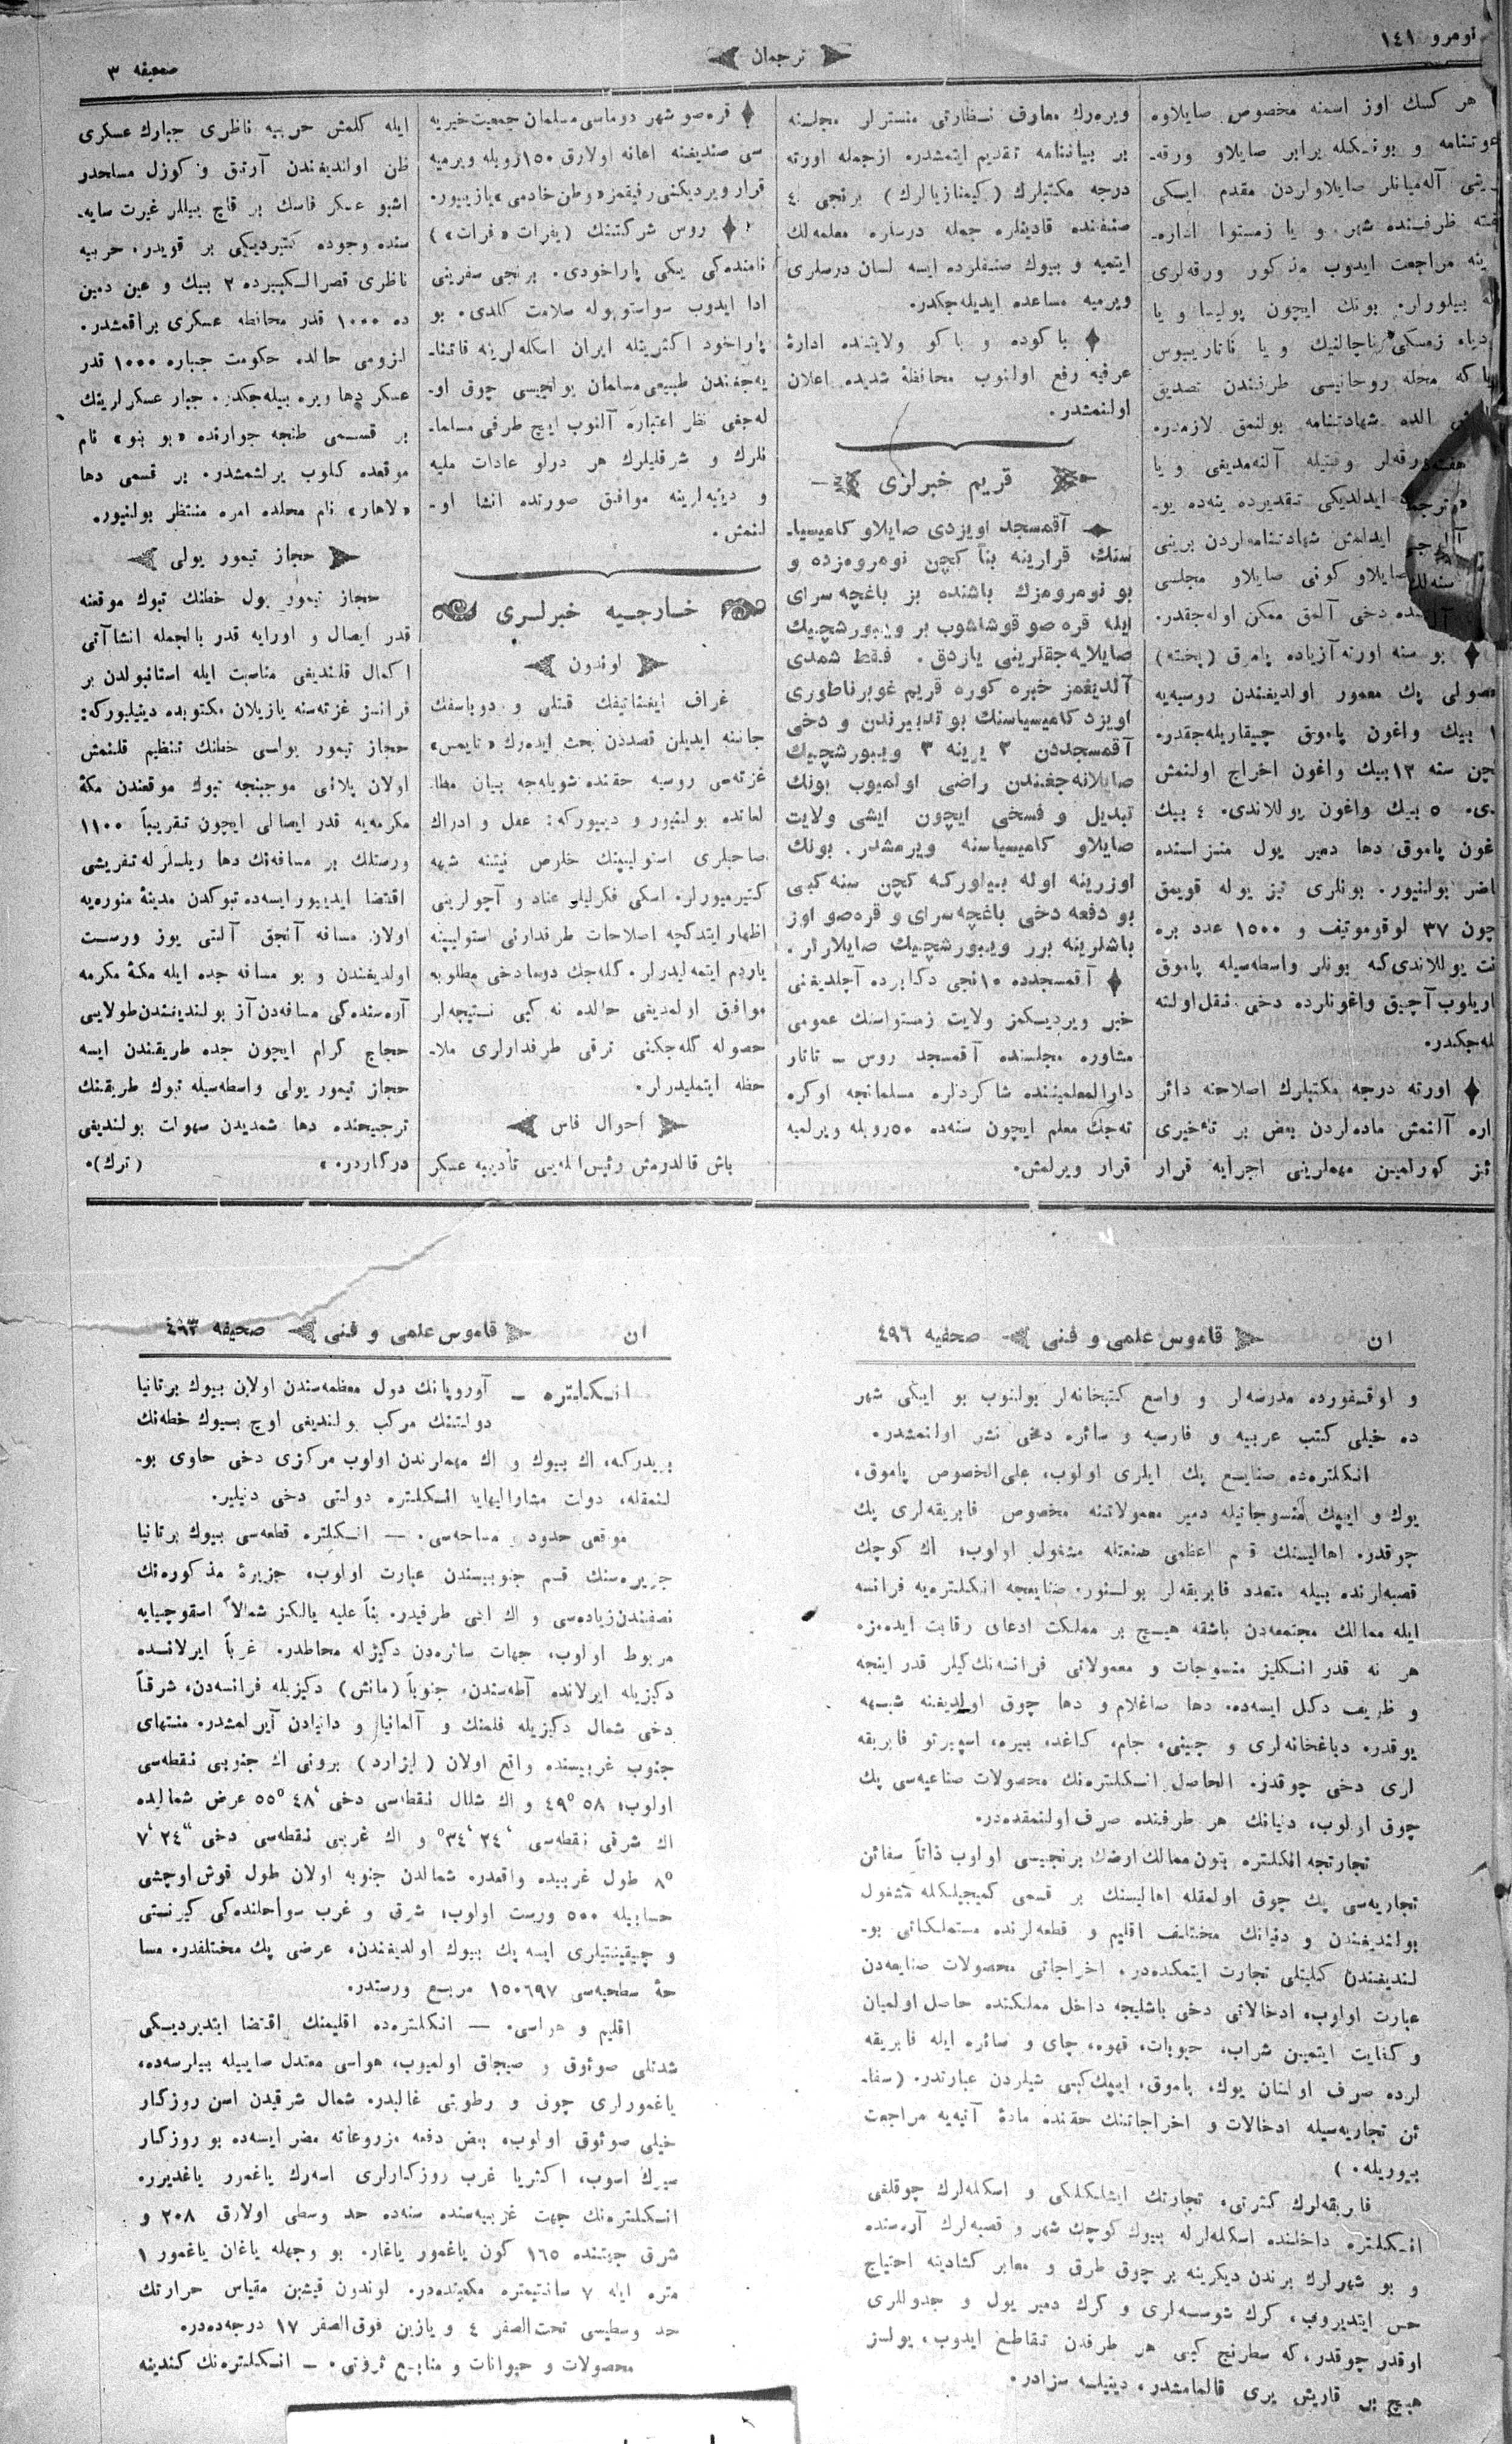 نومرو ١٤١
ترجمان
صحيفه ٣
هر كسك اوز اسمنه مخصوص صايلاوه
عوتنامه و بوتكله برابر صايلاو ورقه‌ـ
آله‌ميانلر صايلاولردن مقدم ايكى
فته ظرفسنده شهر و يا زمستوا اداره‌ـ
ينه مراجعت ايدوب مذكور ورقه‌لرى
بيلورلر. بونك ايچون پوليسا و يا
زمسكى ناچالنيك و يا نوتاريوس
يا كه محله روحانيسى طرفندن تصديق
الده شهادتنامه بولنمق لازمدر.
ورقه‌لر وقتيله آلنه‌مديغى و يا
ايدلديكى تقديرده ينه‌ده بو‌ـ
ايدلمش شهادتنامه‌لردن برينى
صايلاو كونى صايلاو مجلسى
دخى آلمق ممكن اوله‌جقدر.
بو سنه اورته آزياده پامق (پخته)
صولى پك معمور اولديغندن روسيه‌يه
بيك واغون پاموق چيقاريله‌جقدر.
چن سنه ١٣ بيك واغون اخراج اولنمش
دى. ٥ بيك واغون يوللاندى. ٤ بيك
غون پاموق دها دمير يول ستراسنده
اضر بولنيور. بونلرى تيز يوله قويمق
چون ٣٧ لوقوموتيف و ١٥٠٠ عدد بره
نت يوللاندى كه بونلر واسطه‌سيله پاموق
اريلوب آچيق واغونلرده دخى نقل اولنه
له‌جكدر.
اورته درجه مكتبلرك اصلاحنه دائر
اره آلنمش ماده‌لردن بعض بر تأخيرى
ئز كورلمين مهملرينى اجرايه قرار
ويره‌رك معارف نظارتى منسترلر مجلسنه
بر بياننامه تقديم ايتمشدر. ازجمله اورته
درجه مكتبلرك (كيمنازيالرك) برنجى ٤
صنفنده قادينلره جمله درسلره معلمه‌لك
ايتميه و بيوك صنفلرده ايسه لسان درسلرى
ويرميه مساعده ايديله‌جكدر.
باكوده و باكو ولايتنده ادارۀ
عرفيه رفع اولنوب محافظۀ شديده اعلان
اولنمشدر.
قريم خبرلرى
آقمسجد اويزدى صايلاو كاميسيا‌ـ
سنك قرارينه بناً كچن نومرومزده و
بو نومرومزك باشنده بز باغچه سراى
ايله قره صو قوشاشوب بر ويبورشچيك
صايلايه‌جقلرينى يازدق. فقط شمدى
آلديغمز خبره كوره قريم غوبرناطورى
اويزد كاميسياسنك بو تدبيرندن و دخى
آقمسجددن ٢ يرينه ٣ ويبورشچيك
صايلانه‌جغندن راضى اولميوب بونك
تبديل و فسخى ايچون ايشى ولايت
صايلاو كاميسياسنه ويرمشدر. بونك
اوزرينه اوله بيلوركه كچن سنه كبى
بو دفعه دخى باغچه سراى و قره صو اوز
باشلرينه برر ويبورشچيك صايلارلر.
آقمسجدده ١٠نجى دكابرده آچلديغنى
خبر ويرديكمز ولايت زمستواسنك عمومى
مشاوره مجلسنده آقمسجد روس ـ تاتار
دارالمعلميننده شاكردلره مسلمانجه اوكره
ته‌جك معلم ايچون سنه‌ده ٥٠ روبله ويرلميه
قرار ويرلمش.
قره صو شهر دوماسى مسلمان جمعيت خيريه
سى صنديغنه اعانه اولارق ١٥٠ روبله ويرميه
قرار ويرديكنى رفيقمز «وطن خادمى» يازييور.
روس شركتنك (يفرات «فرات»)
نامنده‌كى يكى پاراخودى. برنجى سفرينى
ادا ايدوب سواستوپوله سلامت كلدى. بو
پاراخود اكثريتله ايران اسكله‌لرينه قاتنا‌ـ
يه‌جغندن طبيعى مسلمان يولجيسى چوق او‌ـ
له‌جغى نظر اعتباره آلنوب ايچ طرفى مسلما‌ـ
نلرك و شرقليلرك هر درلو عادات مليه
و دينيه‌لرينه موافق صورتده انشا او‌ـ
لنمش.
خارجيه خبرلرى
لوندون
غراف ايغناتيفك قتلى و دوباسفك
جاننه ايديلن قصددن بحث ايده‌رك «تايمس»
غزته‌سى روسيه حقنده شويله‌جه بيان مطا‌ـ
لعاتده بولنيور و ديبوركه: عقل و ادراك
صاحبلرى استوليپنك خلوص نيتنه شبهه
كتيرميورلر. اسكى فكرليلر عناد و آجولرينى
اظهار ايتدكجه اصلاحات طرفدارلى استوليپينه
ياردم ايتمه‌ليدرلر. كله‌جك دوما دخى مطلوبه
موافق اولمديغى حالده نه كبى نتيجه‌لر
حصوله كله‌جكنى ترقى طرفدارلرى ملا‌ـ
حظه ايتمليدرلر.
احوال فاس
باش قالدرمش رئيس‌لره تأديبيه عسكر
ايله كلمش حربيه ناظرى جبارك عسكرى
ظن اولنديغندن آرتق و كوزل مسلحدر
اشبو عسكر فاسك بر قاچ ييللر غيرت سايه‌ـ
سنده وجوده كتيرديكى بر قوتدر. حربيه
ناظرى قصرالكبيرده ٢ بيك و عين دمين
ده ١٠٠٠ قدر محافظه عسكرى براقمشدر.
لزومى حالده حكومت جباره ١٠٠٠ قدر
عسكر دها ويره بيله‌جكدر. جبار عسكرلرينك
بر قسمى طنجه جوارنده «بو بنو» نام
موقعده كلوب يرلشمشدر. بر قسمى دها
«لاهار» نام محلده امره منتظر بولنيور.
حجاز تيمور يولى
حجاز تيمور يول خطنك تبوك موقعنه
قدر ايصال و اورايه قدر بالجمله انشاآتى
اكمال قلنديغى مناسبت ايله استانبولدن بر
فرانسز غزته‌سنه يازيلان مكتوبده دينيليوركه:
حجاز تيمور يولسى خطنك تنظيم قلنمش
اولان پلانى موجبنجه تبوك موقعندن مكۀ
مكرمه‌يه قدر ايصالى ايچون تقريباً ١١٠٠
ورستلك بر مسافه‌نك دها ريلسلرله تفريشى
اقتضا ايدييور ايسه‌ده تبوكدن مدينۀ منوره‌يه
اولان مسافه آنجق آلتى يوز ورست
اولديغندن و بو مسافه جده ايله مكۀ مكرمه
آره‌سنده‌كى مسافه‌دن آز بولنديغندن طولايى
حجاج كرام ايچون جده طريقندن ايسه
حجاز تيمور يولى واسطه‌سيله تبوك طريقنك
ترجيحنده دها شمديدن سهولت بولنديغى
دركاردر.» (ترك).
ان
قاموس علمى و فنى
صحيفه ٤٩٦
و اوقسفورده مدرسه‌لر و واسع كتبخانه‌لر بولنوب بو ايكى شهر
ده خيلى كتب عربيه و فارسيه و سائره دخى نشر اولنمشدر.
انكلتره‌ده صنايع پك ايلرى اولوب، على‌الخصوص پاموق،
يوك و ايپك منسوجاتيله دمير معمولاتنه مخصوص فابريقه‌لرى پك
چوقدر. اهاليسنك قسم اعظمى صنعتله مشغول اولوب، اك كوچك
قصبه‌لرنده بيله متعدد فابريقه‌لر بولنور. صنايعجه انكلتره‌يه فرانسه
ايله ممالك مجتمعه‌دن باشقه هيچ بر مملكت ادعاى رقابت ايده‌مز.
هر نه قدر انكليز منسوجات و معمولاتى فرانسه‌نك‌كيلر قدر اينجه
و ظريف دكل ايسه‌ده، دها صاغلام و دها چوق اولديغنه شبهه
يوقدر. دباغخانه‌لرى و چينى، جام، كاغد، بيره، اسپيرتو فابريقه
لرى دخى چوقدر. الحاصل انكلتره‌نك محصولات صناعيه‌سى پك
چوق اولوب، دنيانك هر طرفنده صرف اولنمقده‌در.
تجارتجه انكلتره بتون ممالك ارضك برنجيسى اولوب ذاتاً سفائن
تجاريه‌سى پك چوق اولمغله اهاليسنك بر قسمى كميجيلكله مشغول
بولنديغندن و دنيانك مختلف اقليم و قطعه‌لرنده مستملكاتى بو‌ـ
لنديغندن كليتلى تجارت ايتمكده‌در. اخراجاتى محصولات صنايعه‌دن
عبارت اولوب، ادخالاتى دخى باشليجه داخل مملكتده حاصل اولميان
و كفايت ايتمين شراب، حبوبات، قهوه، چاى و سائره ايله فابريقه
لرده صرف اولنان يوك، پاموق، ايپك كبى شيلردن عبارتدر. (سفا‌ـ
ئن تجاريه‌سيله ادخالات و اخراجاتنك حقنده مادۀ آتيه‌يه مراجعت
بيوريله.)
فابريقه‌لرك كثرتى، تجارتك ايشلكلكى و اسكله‌لرك چوقلغى
انكلتره داخلنده اسكله‌لرله بيوك كوچك شهر و قصبه‌لرك آره‌سنده
و بو شهرلرك برندن ديكرينه بر چوق طرق و معابر كشادينه احتياج
حس ايتديروب، كرك شوسه‌لرى و كرك دمير يول و جدوللرى
اوقدر چوقدر، كه سطرنج كبى هر طرفدن تقاطع ايدوب، يولسز
هيچ بر قاريش يرى قالمامشدر، دينيلسه سزادر.
ان
قاموس علمى و فنى
صحيفه ٤٩٣
انكلتره ـ آوروپانك دول معظمه‌سندن اولان بيوك بريتانيا
دولتنك مركب بولنديغى اوچ بيوك خطه‌نك
بريدركه، اك بيوك و اك مهملرندن اولوب مركزى دخى حاوى بو‌ـ
لنمغله، دولت مشاراليهايه انكلتره دولتى دخى دينلير.
موقعى حدود و مساحه‌سى. — انكلتره قطعه‌سى بيوك بريتانيا
جزيره‌سنك قسم جنوبيسندن عبارت اولوب، جزيرۀ مذكوره‌نك
نصفندن زياده‌سى و اك اينى طرفيدر. بناً عليه يالكز شمالاً اسقوچيايه
مربوط اولوب، جهات سائره‌دن دكيزله محاطدر. غرباً ايرلانده
دكيزيله ايرلانده آطه‌سندن، جنوباً (مانش) دكيزيله فرانسه‌دن، شرقاً
دخى شمال دكيزيله فلمنك و آلمانيا و دانيادن آيرلمشدر. منتهاى
جنوب غربيسنده واقع اولان (ليزارد) برونى اك جنوبى نقطه‌سى
اولوب، ٥٨ ٤٩° و اك شمال نقطه‌سى دخى ٤٨ ٥٥° عرض شماليده
اك شرقى نقطه‌سى و اك غربى نقطه‌سى دخى
٨° طول غربيده واقعدر. شمالدن جنوبه اولان طول قوش اوچشى
حسابيله ٥٠٠ ورست اولوب، شرق و غرب سواحلنده‌كى كيرنتى
و چيقينتيلرى ايسه پك بيوك اولديغندن، عرضى پك مختلفدر. مسا
حۀ سطحيه‌سى ١٥٠٦٩٧ مربع ورستدر.
اقليم و هواسى. — انكلتره‌ده اقليمنك اقتضا ايتديرديكى
شدتلى صوئوق و صيجاق اولميوب، هواسى معتدل صاييله بيلرسه‌ده،
ياغمورلرى چوق و رطوبتى غالبدر. شمال شرقيدن اسن روزكار
خيلى صوئوق اولوب، بعض دفعه مزروعاته مضر ايسه‌ده بو روزكار
سيرك اسوب، اكثريا غرب روزكارلرى اسه‌رك ياغمور ياغديرر.
انكلتره‌نك جهت غربيه‌سنده سنه‌ده حد وسطى اولارق ٢٠٨ و
شرق جهتنده ١٦٥ كون ياغمور ياغار. بو وجهله ياغان ياغمور ١
متره ايله ٧ سانتيمتره مكعبنده‌در. لوندون قيشين مقياس حرارتك
حد وسطيسى تحت‌الصفر ٤ و يازين فوق‌الصفر ١٧ درجه‌ده‌در.
محصولات و حيوانات و منابع ثروتى. — انكلتره‌نك كندينه